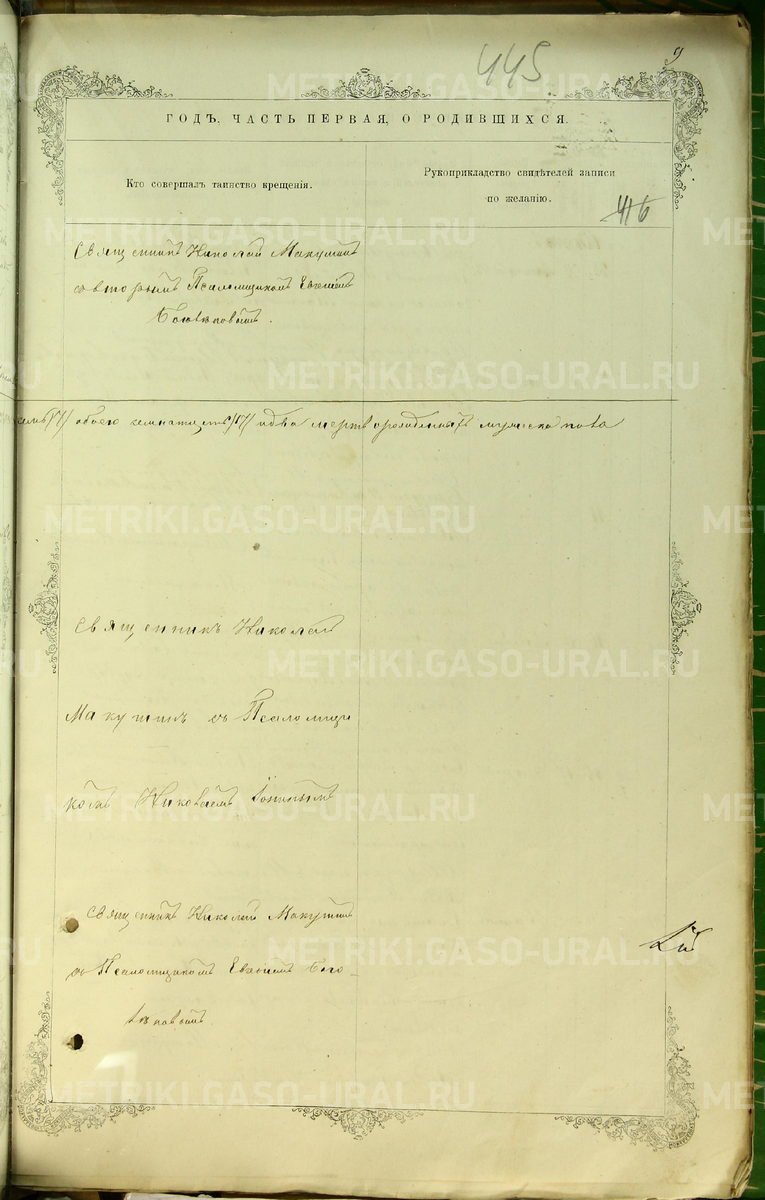 445
9
ГОДЪ, ЧАСТЬ ПЕРВАЯ, О РОДИВШИХСЯ.
Кто совершалъ таинство крещенія.
Рукоприкладство свидѣтелей записи
по желанію.
416
Священникъ Николай Макушинъ
со вторымъ Псаломщикомъ Евгеніемъ
/17/ обоего семнатцеть /17/ и два мертворожденныхъ мужеска пола
Священникъ Николай
Макушинъ съ Псаломщи
комъ Николаемъ
Священникъ Николай Макушинъ
съ Псаломщикомъ Евгеніемъ Бого
METRIKI.GASO-URAL.RU